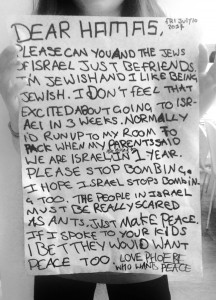 DEAR HAMAS,
FRI JULY 11
2014
PLEASE CAN YOU AND THE JEWS
OF ISRAEL JUST BE FRIENDS.
I'M JEWISH AND I LIKE BEING
JEWISH. I DON'T FEEL THAT
EXCITED ABOUT GOING TO ISR-
AEL IN 3 WEEKS. NORMALLY
I'D RUN UP TO MY ROOM TO
PACK WHEN MY PARENTS SAID
WE ARE ISRAEL IN 1 YEAR.
PLEASE STOP BOMBING.
I HOPE ISRAEL STOPS BOMBIN-
G TOO. THE PEOPLE IN ISRAEL
MUST BE REALLY SCARED
AS ANTS. JUST MAKE PEACE.
IF I SPOKE TO YOUR KIDS
I BET THEY WOULD WANT
PEACE TOO. LOVE PHOEBE
WHO WANTS PEACE